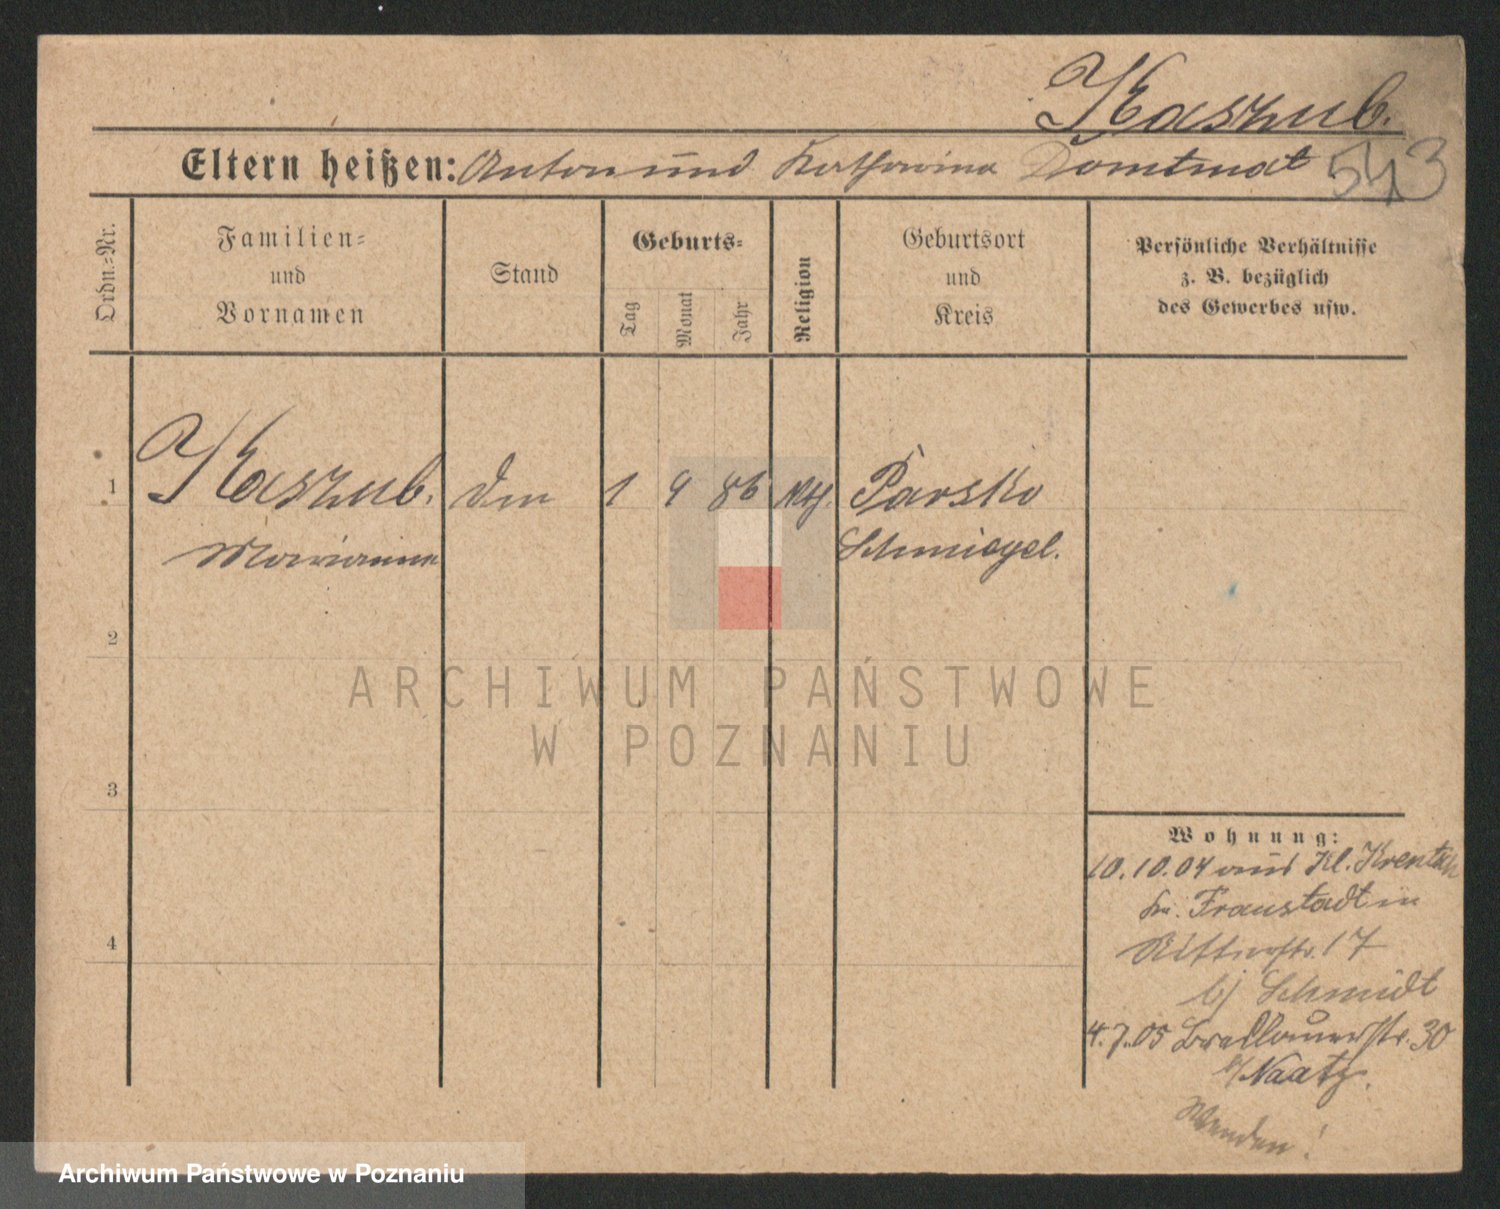 Kaszub.
Eltern heißen: Anton und Katharina
543
Ordn.-Nr.
Familien-
und
Vornamen
Stand
Geburts-
Tag
Monat
Jahr
Religion
Geburtsort
und
Kreis
Persönliche Verhältnisse
z. B. bezüglich
des Gewerbes usw.
1 Kaszub. 1 9 86 Parsko
Marianna Schmiegel.
2
3
4
Wohnung:
10.10.04 aus Kl. Krentsch
Kr. Fraustadt in
Ritterstr. 17
bj Schmidt
4.7.05 30
b/ Naatz.
Wenden!
ARCHIWUM PAŃSTWOWE
W POZNANIU
Archiwum Państwowe w Poznaniu